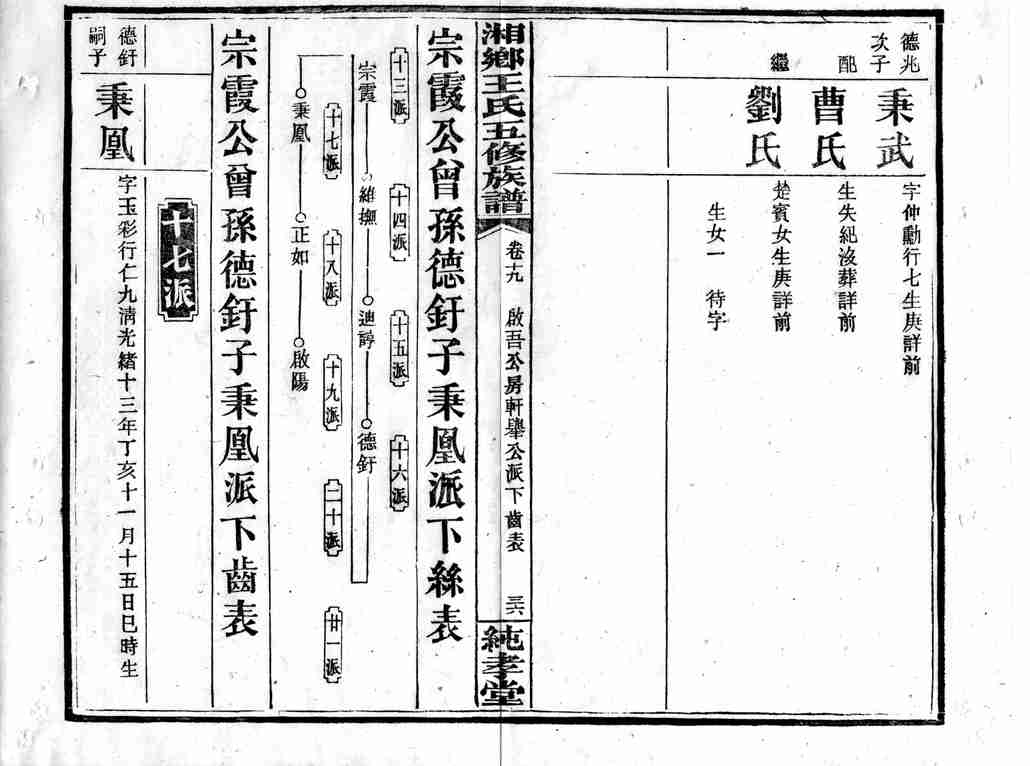 德兆
次子
秉武
字仲勳行七生庚詳前
配
曹氏
生失紀沒葬詳前
繼
劉氏
楚賓女生庚詳前
生女一 待字
湘鄉王氏五修族譜
卷十九
啟吾公房軒舉公派下齒表
三六
純孝堂
宗霞公曾孫德釪子秉凰派下絲表
十三派
十四派
十五派
十六派
宗霞
維撫
迪諄
德釪
十七派
十八派
十九派
二十派
廿一派
秉凰
正如
啟陽
宗霞公曾孫德釪子秉凰派下齒表
十七派
德釪
嗣子
秉凰
字玉彩行仁九清光緒十三年丁亥十一月十五日巳時生